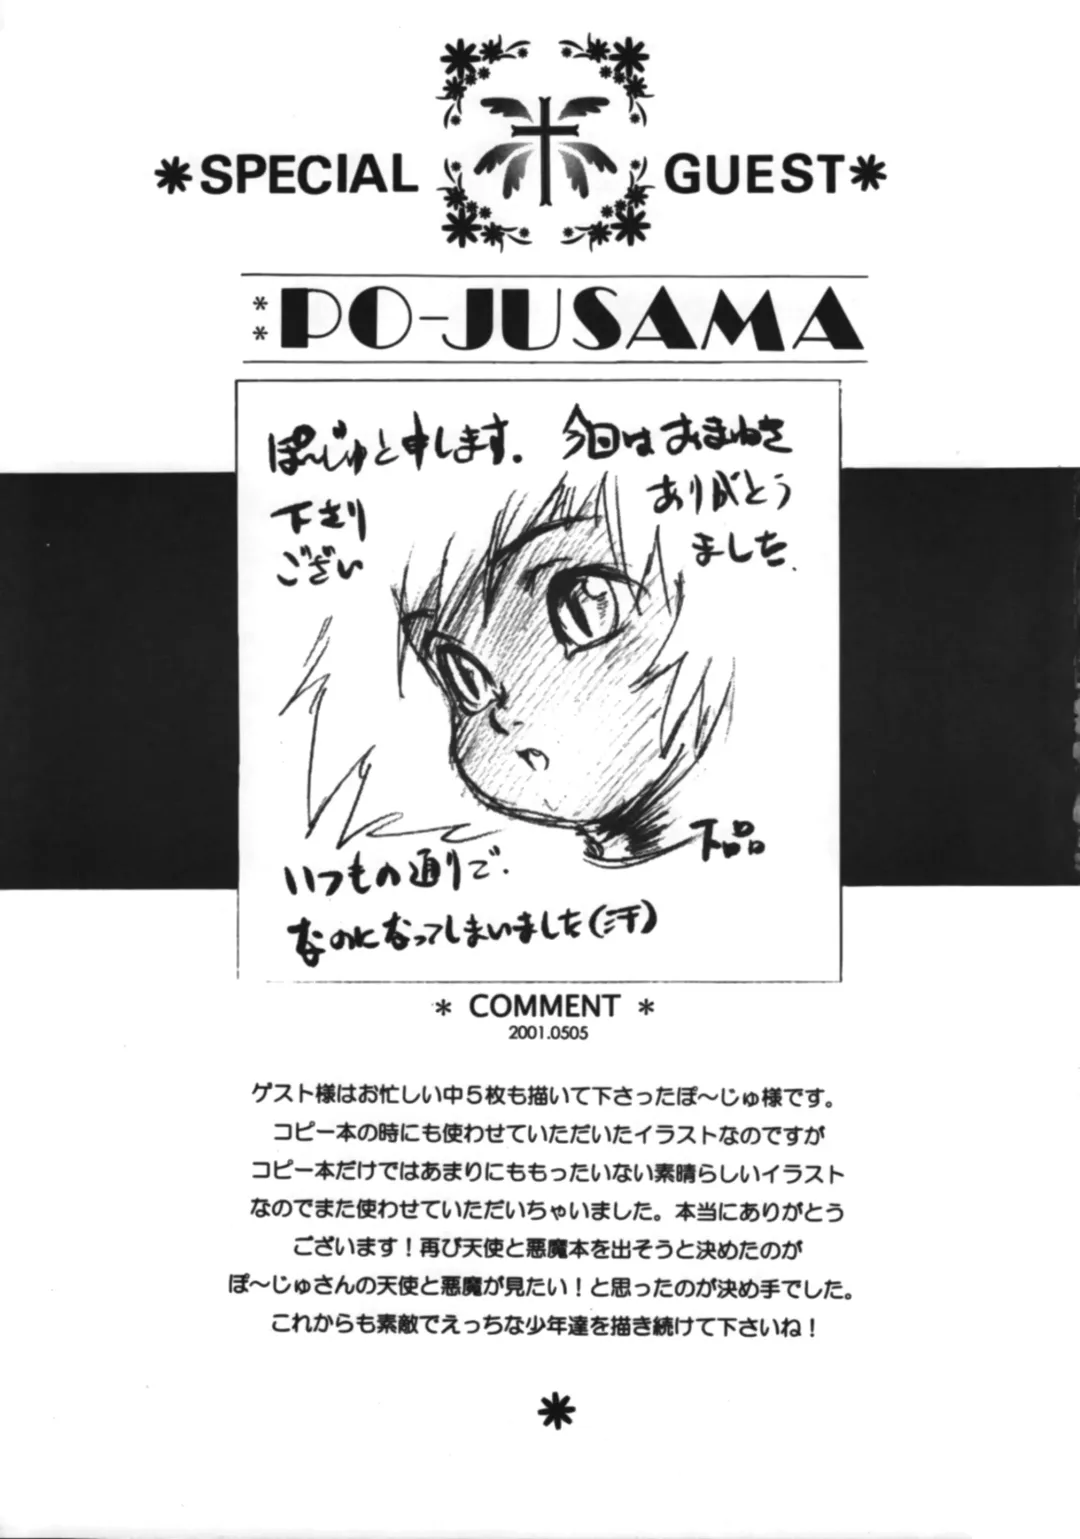 *SPECIAL GUEST*
** PO-JUSAMA
ぽ〜じゅと申します。今回はおまねき
下さり ありがとう
ござい ました.
下品
いつもの通りで.
なのになってしまいました(汗)
* COMMENT *
2001.0505
ゲスト様はお忙しい中5枚も描いて下さったぽ〜じゅ様です。
コピー本の時にも使わせていただいたイラストなのですが
コピー本だけではあまりにももったいない素晴らしいイラスト
なのでまた使わせていただいちゃいました。本当にありがとう
ございます!再び天使と悪魔本を出そうと決めたのが
ぽ〜じゅさんの天使と悪魔が見たい!と思ったのが決め手でした。
これからも素敵でえっちな少年達を描き続けて下さいね!
*